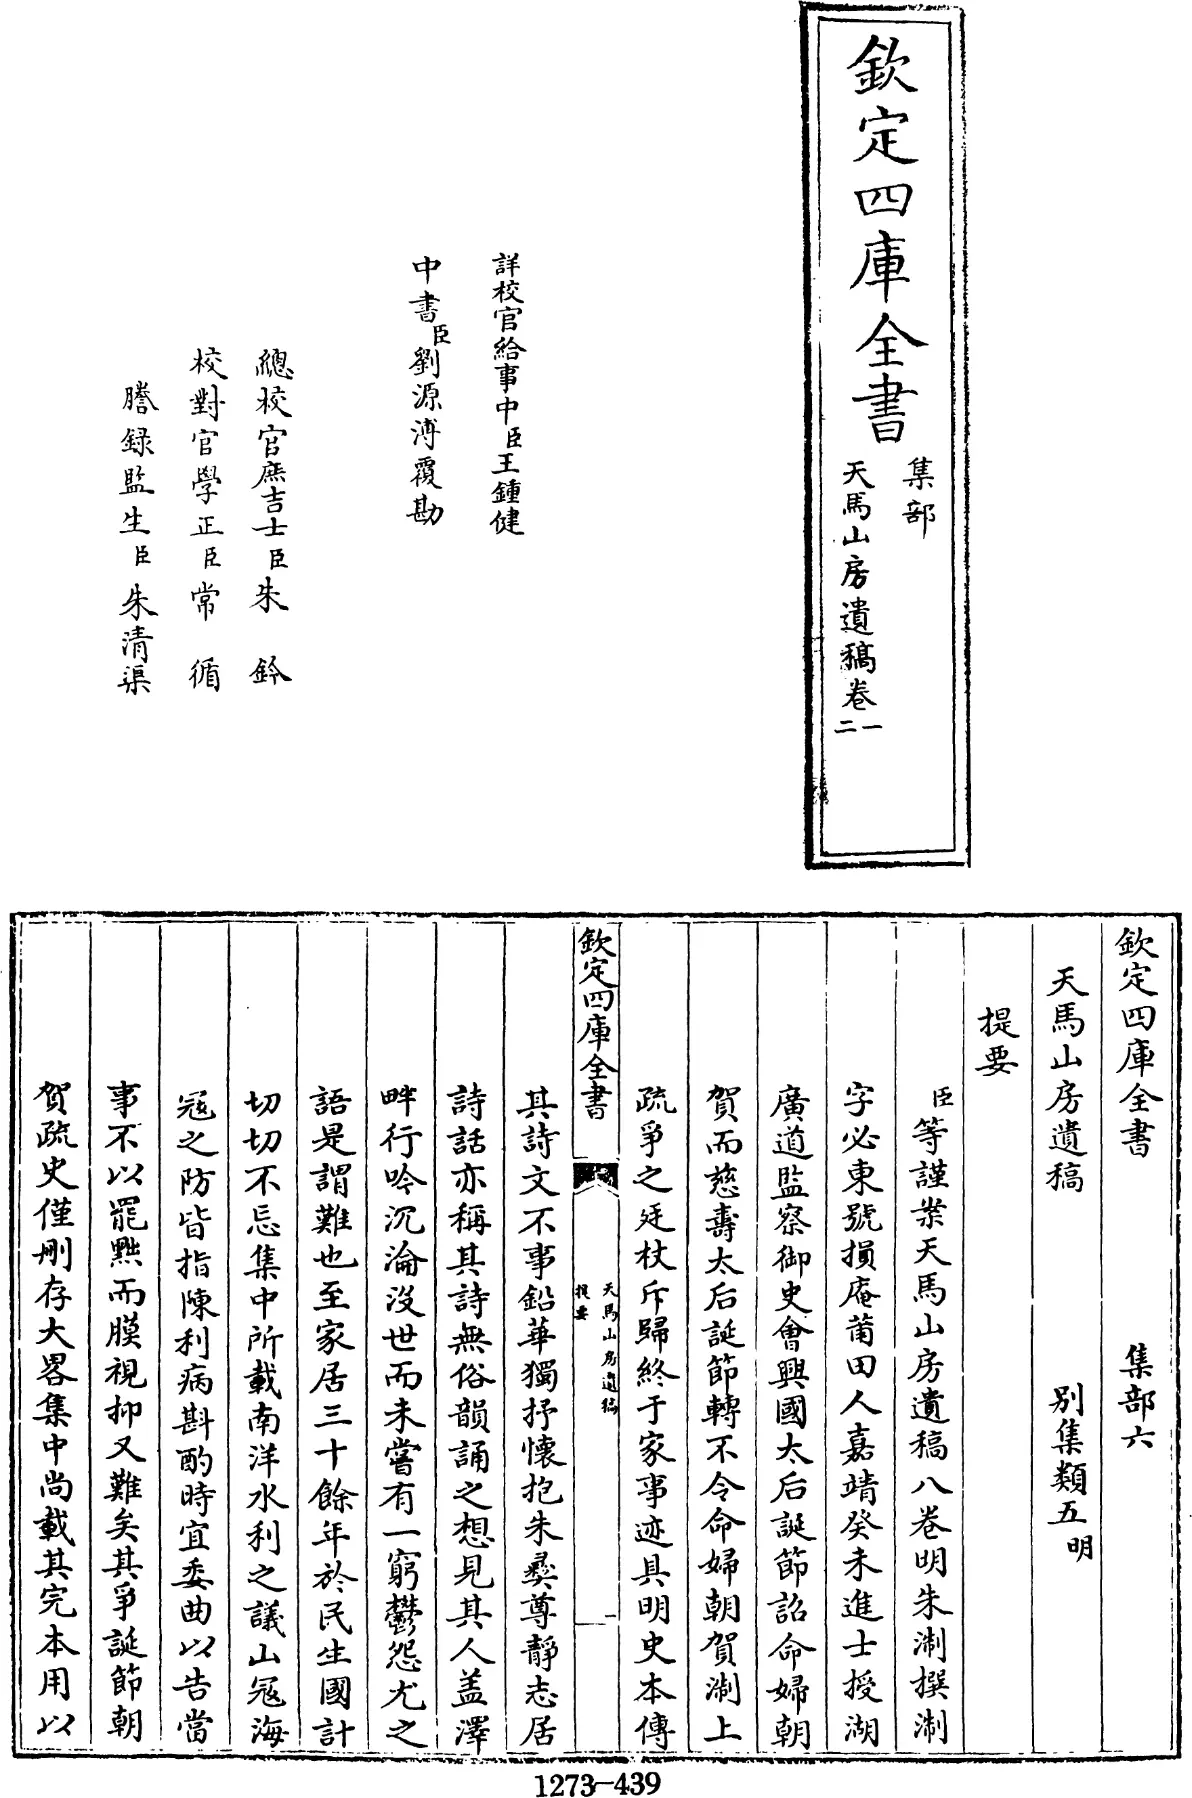 欽定四庫全書
集部
天馬山房遺稿卷一
二
詳校官給事中臣王鍾健
中書臣劉源溥覆勘
總校官庶吉士臣朱鈐
校對官學正臣常循
謄録監生臣朱清渠
欽定四庫全書 集部六
天馬山房遺稿 別集類五明
提要
臣等謹案天馬山房遺稿八卷明朱淛撰淛
字必東號損庵莆田人嘉靖癸未進士授湖
廣道監察御史會興國太后誕節詔命婦朝
賀而慈壽太后誕節轉不令命婦朝賀淛上
疏爭之廷杖斥歸終于家事迹具明史本傳
欽定四庫全書
天馬山房遺稿
提要
一
其詩文不事鉛華獨抒懷抱朱彝尊靜志居
詩話亦稱其詩無俗韻誦之想見其人盖澤
畔行吟沉淪沒世而未嘗有一窮鬱怨尤之
語是謂難也至家居三十餘年於民生國計
切切不忘集中所載南洋水利之議山冦海
冦之防皆指陳利病斟酌時宜委曲以告當
事不以罷黜而膜視抑又難矣其爭誕節朝
賀疏史僅刪存大畧集中尚載其完本用以
1273-439